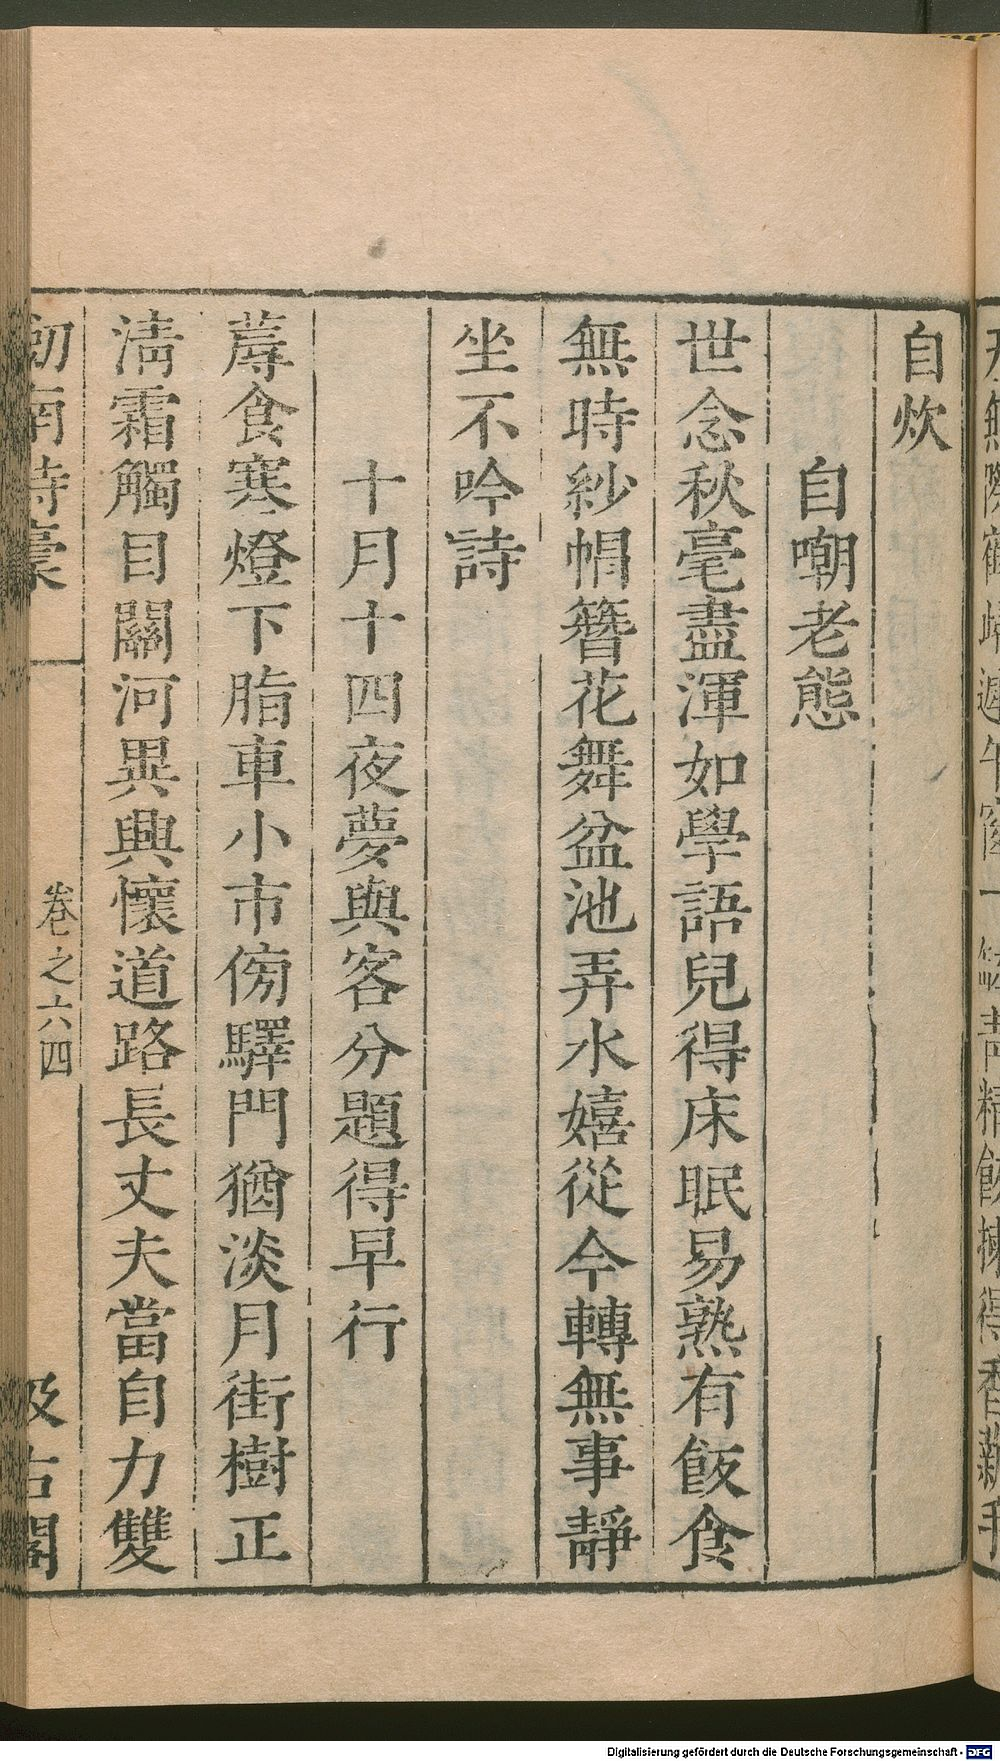 自炊
自嘲老態
世念秋毫盡渾如學語兒得床眠易熟有飯食
無時紗帽簪花舞盆池弄水嬉從今轉無事靜
坐不吟詩
十月十四夜夢與客分題得早行
蓐食寒燈下脂車小市傍驛門猶淡月街樹正
淸霜觸目關河異興懷道路長丈夫當自力雙
劒南詩稾
卷之六四
汲古閣
Digitalisierung gefördert durch die Deutsche Forschungsgemeinschaft - DFG